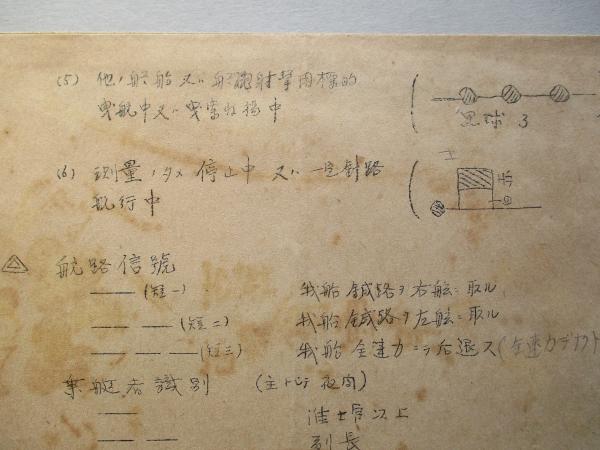 (5) 他ノ船舶又ハ船砲射撃用標的
曳航中又ハ曳索収揚中
黒球 3
(6) 測量ノタメ停止中 又ハ一定針路
航行中
赤
白
航路信號
(短一) 我船鍼路ヲ右舷ニ取ル
(短二) 我船鍼路ヲ左舷ニ取ル
(短三) 我船全速力ニテ后退ス(全速力デナク
乗艇者識別 (主トシテ夜間)
准士官以上
副長